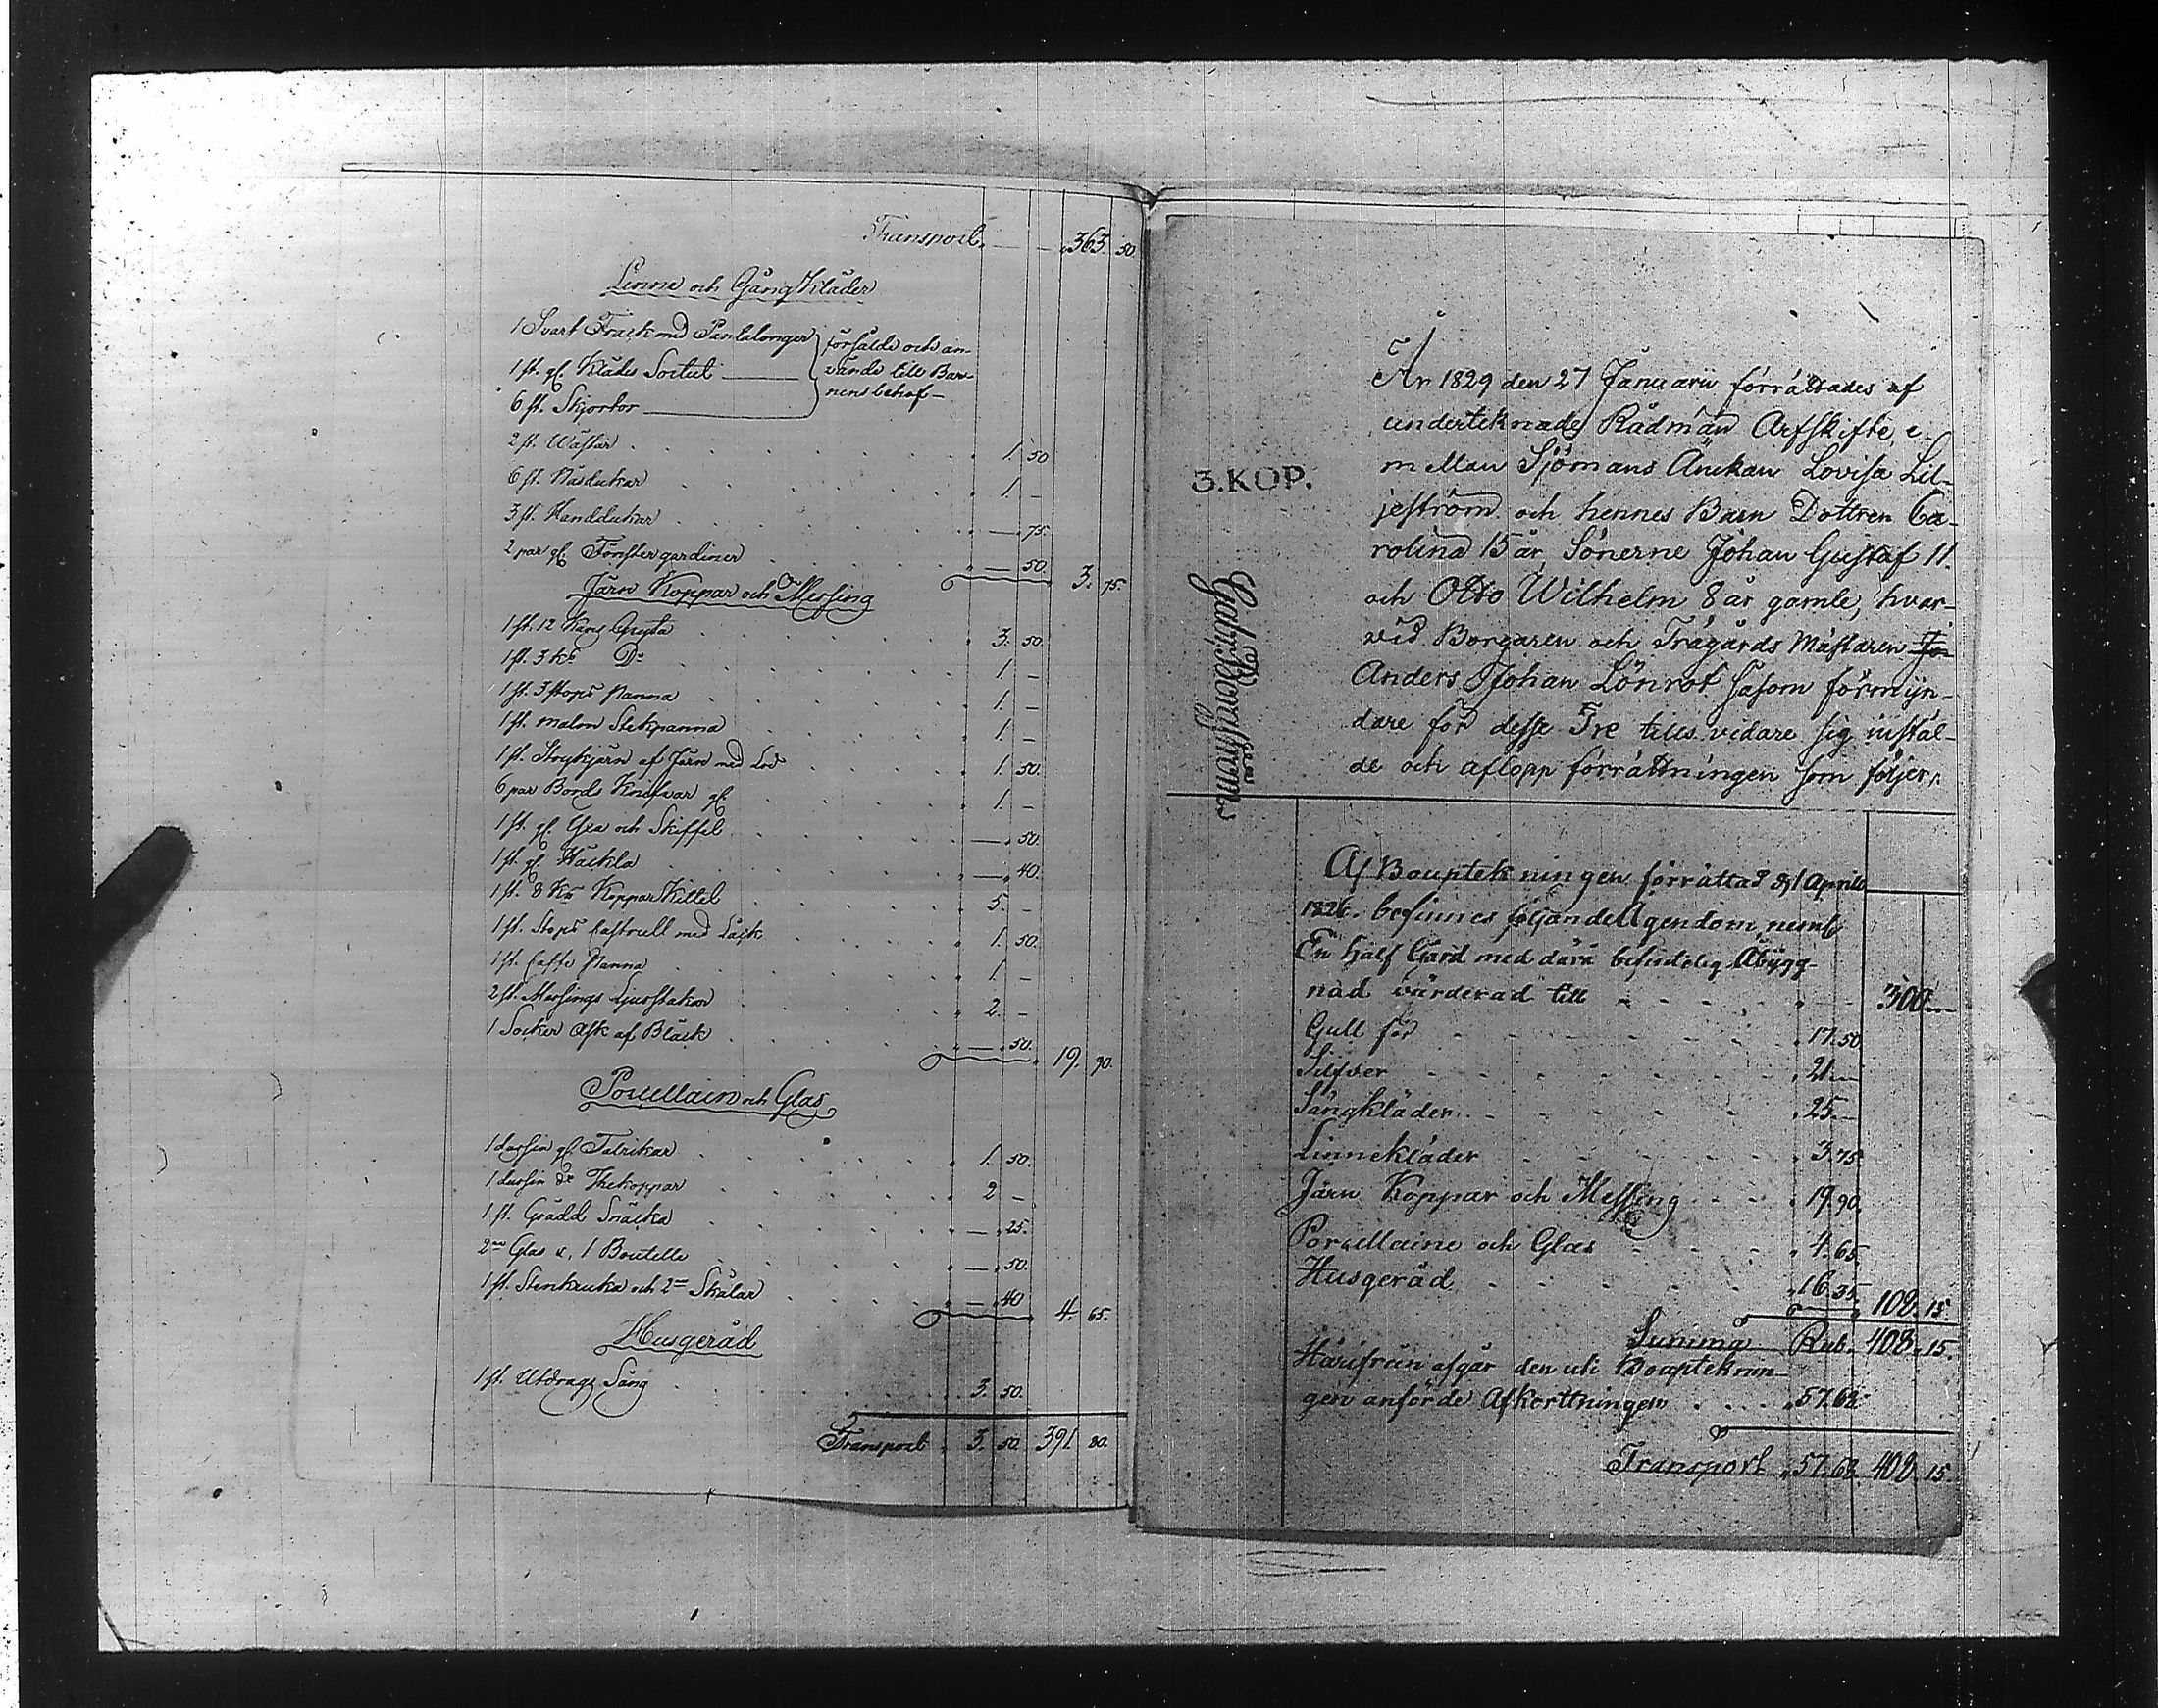 Transport „ — — „ 363. 50.
Linne och Gång Kläder
1 Svart Frack med Pantalonger
1 st. gl. Klädes Sortut
6 st. Skjortor
försålde och an-
vände till Bar-
nens behof —
2 st. Wästar . . . „ 1. 50
6 st. Näsdukar . . . „ 1. –
3 st. Handdukar . . . „ — „ 75.
2 par gl. Fönster gardiner . . . „ — 50. 3. 75.
Järn Koppar och Messing
1 st. 12 Kans Gryta . . . „ 3. 50.
1 st. 3 Ks Do . . . „ 1. –
1 st. 3 stops Panna . . . „ 1. –
1 st. malm Stekpanna . . . „ 1. –
1 st. Strykjärn af Järn med Lod . . . „ 1. 50.
6 par Bords Knifvar gl. . . . „ 1. –
1 st. gl. Yxa och Skiffel . . . — „ 50.
1 st. gl. Häckla . . . „ — „ 40.
1 st. 8 Ks Koppar Kittel . . . „ 5. –
1 st. Stops Castrull med Läck . . . „ 1. 50.
1 st. Caffe Panna . . . „ 1. –
2 st. Messings Ljusstakar . . . „ 2. –
1 Socker Ask af Bläck . . . „ — „ 50. 19. 90.
Porcellain och Glas
1 dussin gl. Talrikar . . . „ 1. 50.
1 dussin do Thekoppar . . . „ 2 –
1 st. Grädd Snäcka . . . „ — „ 25.
2ne Glas o, 1 Boutelle . . . „ — „ 50.
1 st. Stenkruka och 2ne Skålar . . . „ — „ 40 4. 65.
Husgeråd
1 st. Utdrags Säng . . . 3. 50.
Transport „ 3. 50. 391. 80.
3. KOP.
Gab. Borgström
År 1829 den 27 Januarii förrättades af
underteknade Rådmän Arfskifte, e-
mellan Sjömans Änckan Lovisa Lil-
jeström och hennes Barn Dottren Ca-
rolina 15 år, Sönerne Johan Gustaf 11.
och Otto Wilhelm 8 år gamle, hvar-
vid Borgaren och Trägårds Mästaren Jo
Anders Johan Lönrot såsom förmyn-
dare för desse Tre tills vidare sig instäl-
de och aflopp förrättningen som följer.
Af Bouptekningen förrättad d. 1 Aprill
1826. befinnes följande Ägendom, neml.
En half Gård med därå befindelig Åbygg-
nad värderad till — — — „ — 300 —
Gull för — — — „ 17. 50
Silfver — — — „ 21 —
Sängkläder — — — „ 25 —
Linnekläder — — — „ 3. 75
Järn Koppar och Messing — — „ 19. 90.
Porcellaine och Glas — — — „ 4. 65.
Husgeråd — — — „ 16. 35. 108. 15.
Summa Rub. 408. 15.
Härifrån afgår den uti Boupteknin-
gen anförde Afkorttningen . . . „ 57. 68.
Transport „ 57. 68. 408. 15.